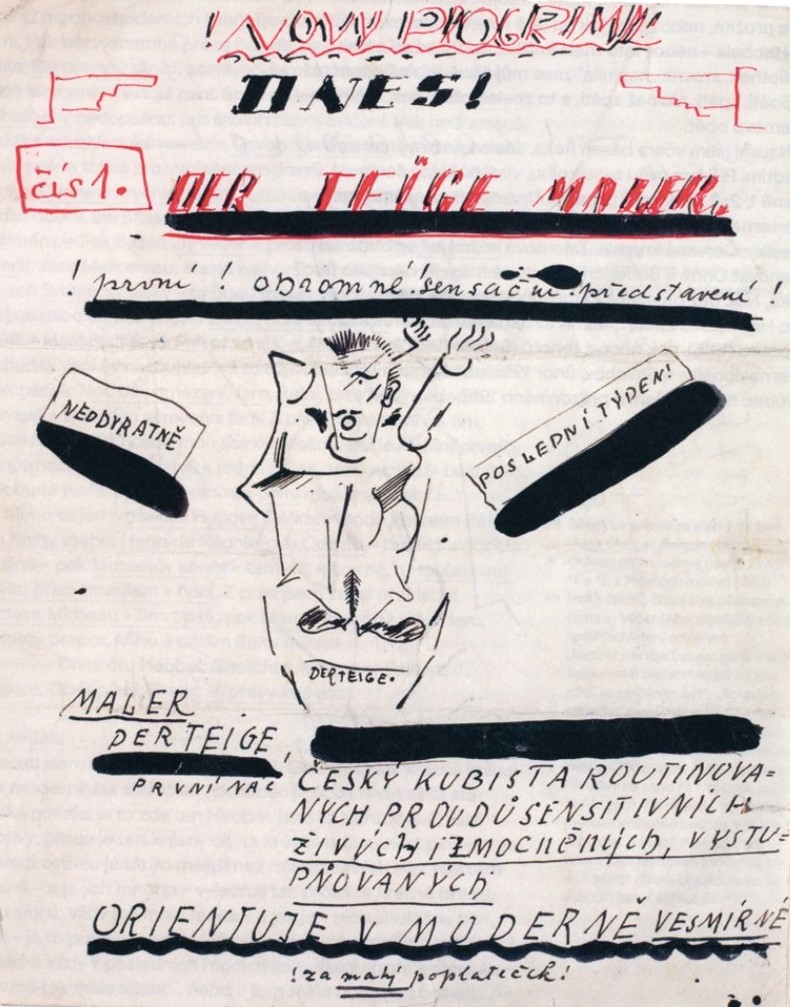 ! NOVÝ PROGRAM!
DNES!
čís 1.
DER TEIGE MALER.
! první ! ohromné sensační představení !
NEODVRATNĚ
POSLEDNÍ TÝDEN!
DERTEIGE.
MALER
DER TEIGE
PRVNÍ NÁŠ
ČESKÝ KUBISTA ROUTINOVA=
NÝCH PROUDŮ SENSITIVNÍCH
ŽIVÝCH I ZMOCNĚNÝCH, VYSTU=
PŇOVANÝCH
ORIENTUJE V MODERNĚ VESMÍRNÉ
! za malý poplateček !